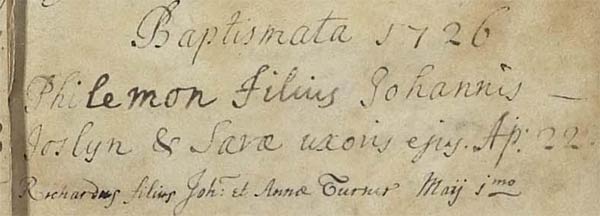 Baptismata 1726
Philemon Filius Johannis —
Joslyn & Saræ uxoris ejus. Ap: 22.
Richardus filius Joh: et Annæ Turner Maij 1mo